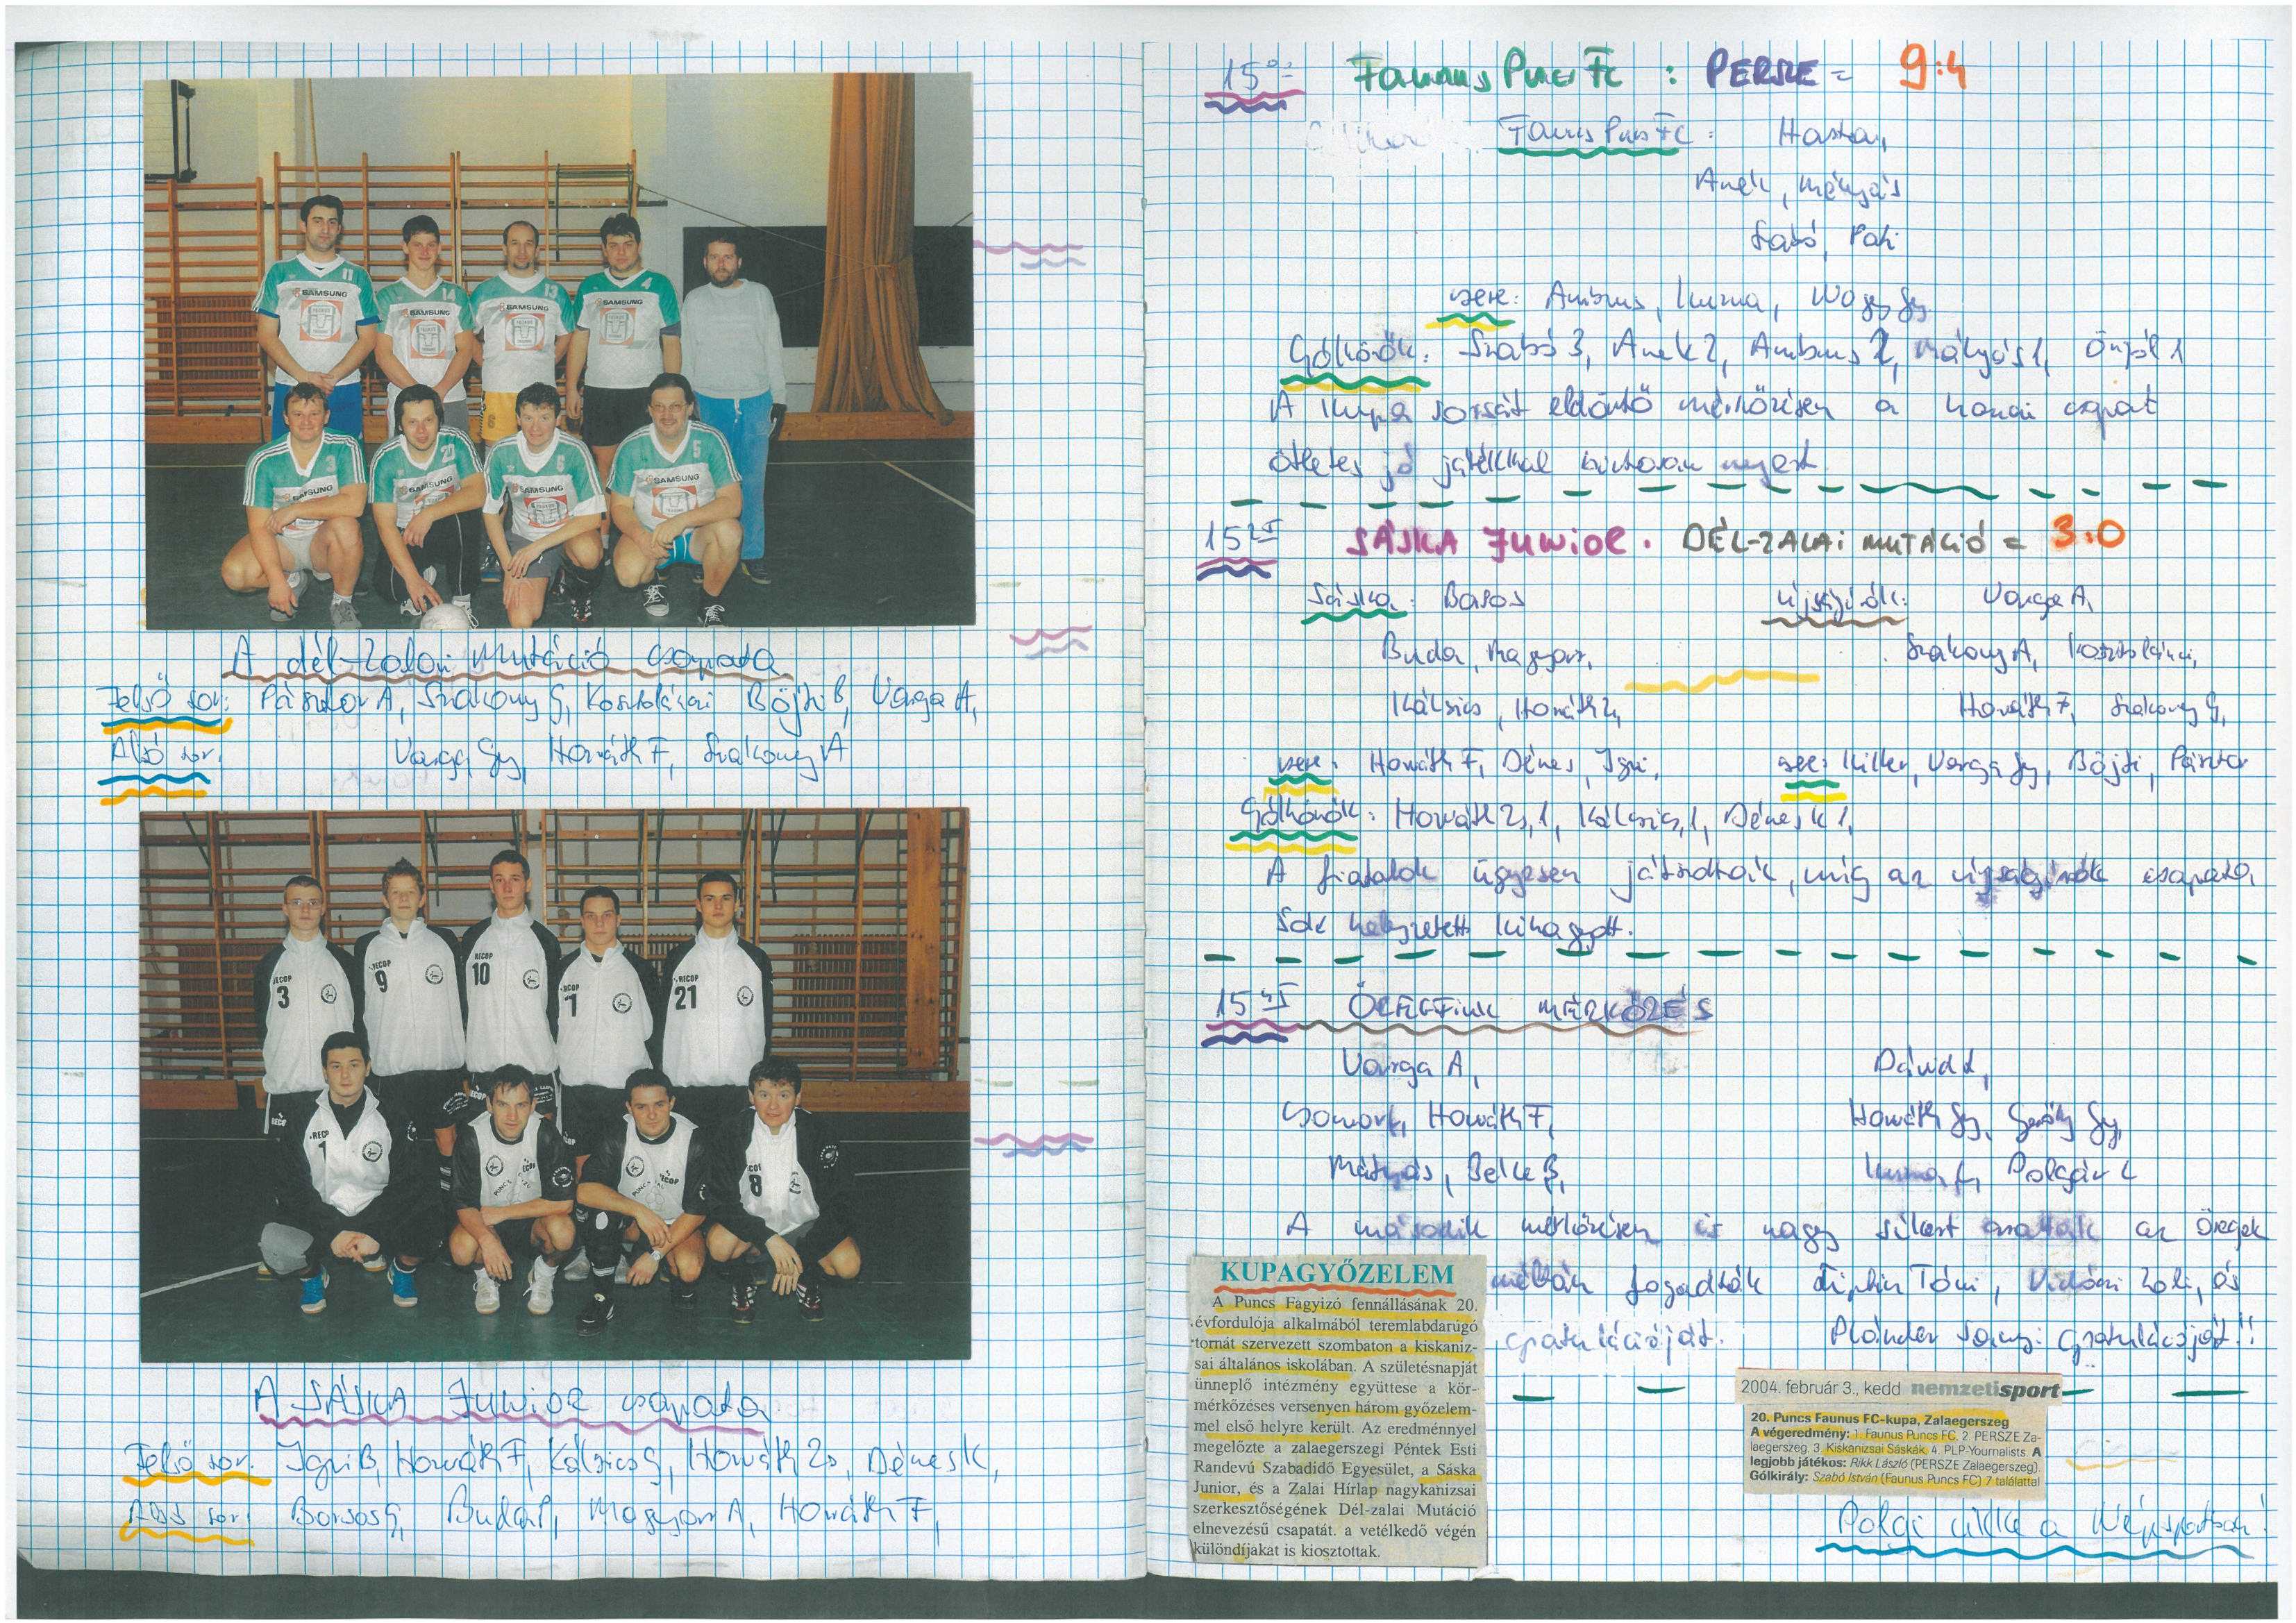 A dél-zalai Mutáció csapata
Felső sor: Pásztor A, Szakony G, Kosztolánczi Böjti B, Varga A,
Alsó sor: Varga Gy, Horváth F, Szakony A
A SÁSKA JUNIOR csapata
Felső sor: Igri B, Horváth F, Kálcsics G, Horváth Zs, Dénes K,
Alsó sor: Borsos G, Buda P, Magyar A, Horváth F,
15 Faunus Puncs FC : PERSZE = 9:4
Faunus Puncs FC:
Anek, Mátyás
Szabó, Pali
csere: Ambrus, Kuzma, Nagy Gy
Gólkirök: Szabó 3, Anek 2, Ambrus 2, Mátyás 1, Öngól 1
A kupa sorsát eldöntő mérkőzésen a hazai csapat
ötletes jó játékkal biztosan nyert
15 SÁSKA JUNIOR. DÉL-ZALAI MUTÁCIÓ = 3:0
Sáska: Borsos újságírók: Varga A,
Buda, Magyar, Szakony A, Kosztolánczi,
Kálcsics, Horváth Zs, Horváth F, Szakony G,
csere: Horváth F, Dénes, Igri, csere: Killer, Varga Gy, Böjti, Pásztor
Gólkirök: Horváth Zs, 1, Kálcsics, 1, Dénes K 1,
A fiatalok ügyesen játszottak, míg az újságírók csapata
sok helyzetett kihagyott.
15 ÖREGFIUK MÉRKŐZÉS
Varga A, Dávid L,
Csomor, Horváth F, Horváth Gy, Gerőly Gy,
Mátyás, Belke B, Kuzma, Polgár L
A második mérkőzésen is nagy sikert arattak az öregek
méltán fogadták Tóni, Vidóczi Zoli, és
gratulációját. Plánder gratulációját!!
KUPAGYŐZELEM
A Puncs Fagyizó fennállásának 20.
évfordulója alkalmából teremlabdarúgó
tornát szervezett szombaton a kiskaniz-
sai általános iskolában. A születésnapját
ünneplő intézmény együttese a kör-
mérkőzéses versenyen három győzelem-
mel első helyre került. Az eredménnyel
megelőzte a zalaegerszegi Péntek Esti
Randevú Szabadidő Egyesület, a Sáska
Junior, és a Zalai Hírlap nagykanizsai
szerkesztőségének Dél-zalai Mutáció
elnevezésű csapatát. a vetélkedő végén
különdíjakat is kiosztottak.
2004. február 3., kedd nemzetisport
20. Puncs Faunus FC-kupa, Zalaegerszeg
A végeredmény: 1. Faunus Puncs FC, 2. PERSZE Za-
laegerszeg, 3. Kiskanizsai Sáskák, 4. PLP-Yournalists. A
legjobb játékos: Rikk László (PERSZE Zalaegerszeg).
Gólkirály: Szabó István (Faunus Puncs FC) 7 találattal
Polgi cikke a Népsportban!